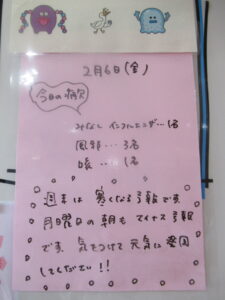 2月6日(金)
今日の病欠
みなし インフルエンザ…1名
風邪…3名
咳…1名
週末は 寒くなる予報です。
月曜日の朝も マイナス予報
です。気をつけて 元気に 登園
してください!!